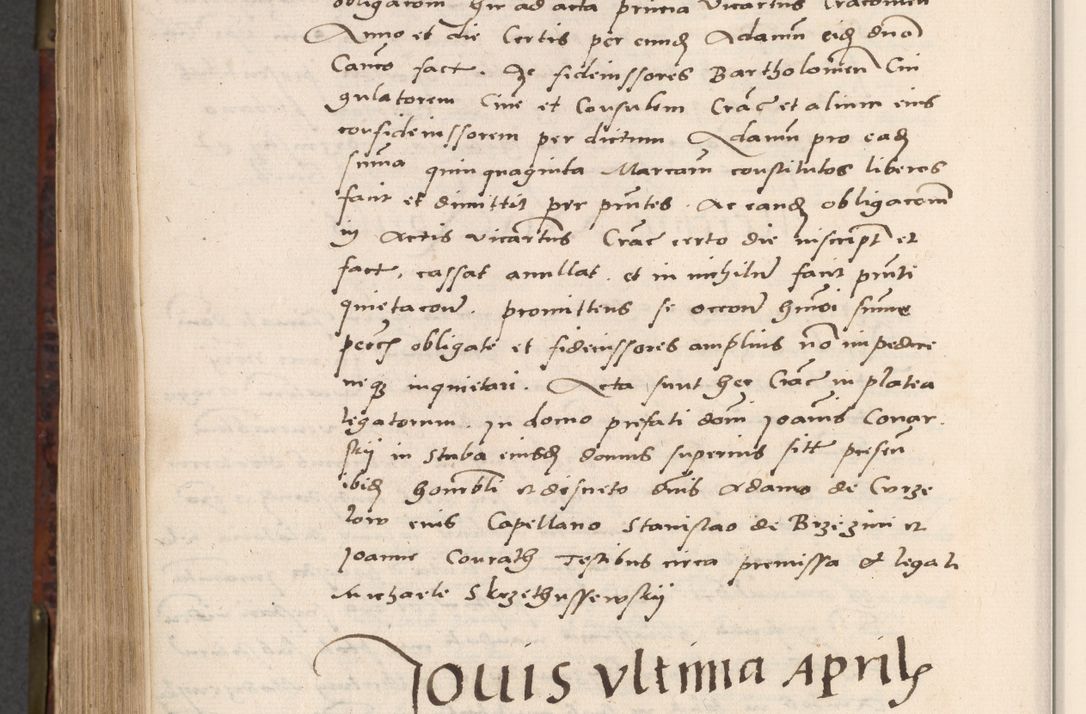 obligacom hir ad acta primia Vicartus Cracovien
Anno et die Certis per eund Adamu eid dno
Canco fact. Ac fideiussores Bartholomeu Cin
gulatorem Cive et Consulem Crac et alium eius
confideiussorem per dictum Adamu pro ead
suma quinquaginta Marcaru constitutos liberos
facit et dimittit per pntes. Ac eand obligacom
in Actis vicartus Crac certo die inscript et
fact, cassat anullat et in nichilu facit pnti
quietacoe. promittens se occoe hmoi sume
percz obligate et fideiussores amplius no impedire
neq inquietari. Acta sunt hec Crac in platea
legatorum. In domo prefati dom Joanis Conar
skij in Stuba eiusd domus superius sitt presen
ibid honorbli et discreto dnis Adamo de Curze
low eius Capellano Stanislao de Brzezini et
Joanne Conrath Testibus circa premissa Et legali
Michaele Skrzethussewskij
Jouis vltima Aprilis